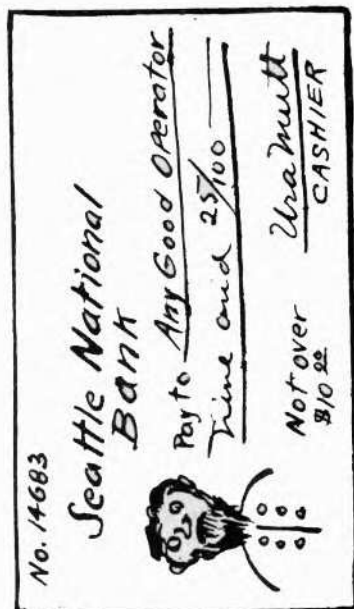 No. 14683
Seattle National
Bank
Pay to Any Good Operator
Nine and 25/100
Not over
$10 00
Ura Mutt
CASHIER